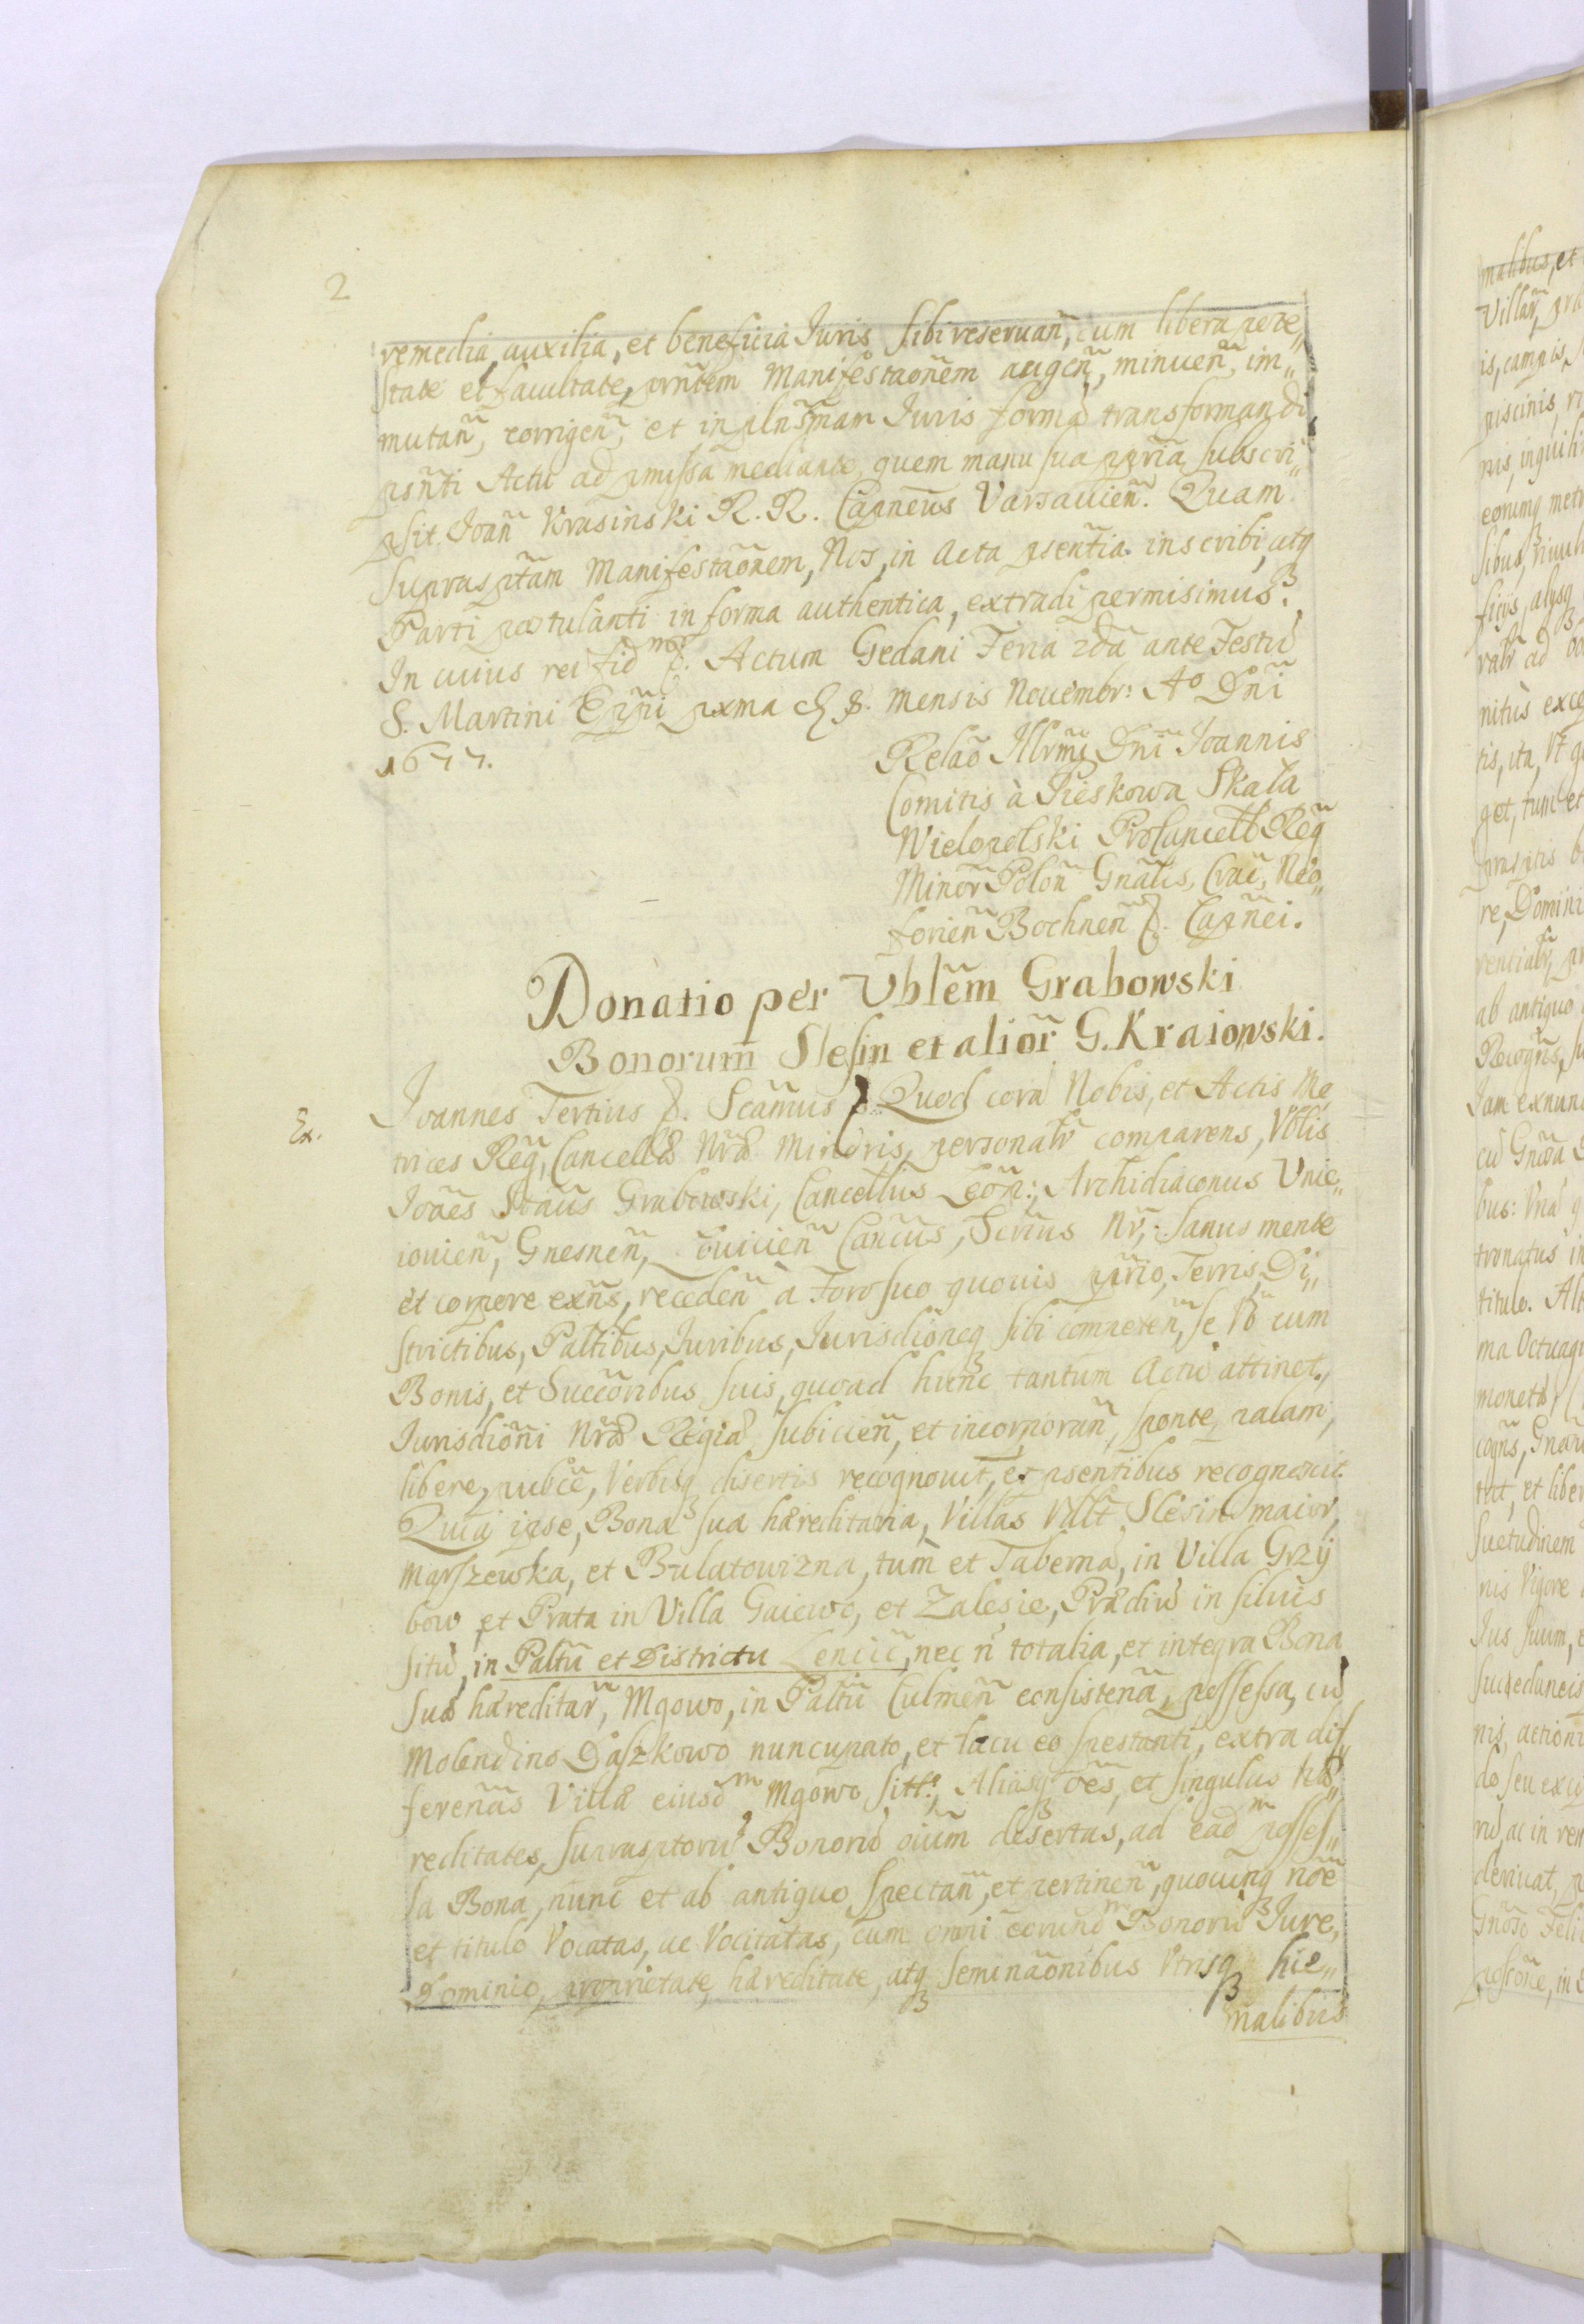 2
remedia, auxilia, et beneficia Iuris sibi reseruañ, cum libera pote„
state et facultate, pñtem Manifestaoñem augeñ, minueñ, im„
mutañ, corrigeñ, et in plñsmam Iuris formã transformandi
psñti Actu ad pmissa mediante, quem manu sua ppria subscri„
psit. Ioañ Krasinski R. R. Capneus Varsauieñ. Quam
suprasptam Manifestaõnem, Nos, in Acta psentia inscribi, atq
Parti postulanti in forma authentica, extradi permisimus.
In cuius rei fid m &. Actum Gedani Feria 2da ante Festũ
S. Martini Eppi pxma 8. Mensis Nouembr: Ao Dñi
1677.
Relaõ Illrmi Dñi Ioannis
Comitis à Pieskowa Skała
Wielopolski ProCancell Regñ
Minor Poloñ Gnalis, Crac, Neo„
forieñ Bochneñ &. Capnei.
Donatio per Vblem Grabowski
Bonorum Slesin et alior G. Kraiowski.
Ex.
Ioannes Tertius &. Scamus & Quod corã Nobis, et Actis Me
trices Regñ, Cancellæ Nræ Minoris, personalr comparens, Vblis
Ioães Staus Grabowski, Cancellus Leoñ: Archidiaconus Vnie„
iouieñ, Gnesneñ, Louicieñ Cancus, Scrius Nr, sanus mente
et corpore exñs, recedeñ à Foro suo quouis pprio, Terris, Di„
strictibus, Paltibus, Iuribus, Iurisdioneq sibi competeñ, se Vo cum
Bonis, et Succoribus suis, quoad hunc tantum Actũ attinet,
Iurisdioni Nræ Regiæ subicieñ, et incorporañ, sponte, palam,
libere, publce, Verbisq disertis recognouit, et psentibus recognoscit.
Quia ipse, Bona sua hæreditaria, Villas Vdlt Slesin maior,
Marszewka, et Bulatowizna, tum et Tabernã, in Villa Grzy
bow et Prata in Villa Gaiewo, et Zalesie, Prædiũ in siluis
sitũ, in Paltu et Districtu Lencic, nec ñ totalia, et integra Bona
sua hæreditar, Mgowo, in Paltu Culmeñ consistena, possessa, cũ
Molendino Daszkowo nuncupato, et lacu eo spectanti, extra dif„
ferenas Villæ eiusd m Mgowo sitt., Aliasq oes, et singulas hæ„
reditates, supraspTorũ Bonorũ oium desertas, ad ead m posses„
sa Bona, nunc et ab antiquo spectañ, et pertineñ, quocunq noe
et titulo Vocatas, ac Vocitatas, cum omni eorund m Bonorũ Iure,
Dominio, proprietate, hæreditate, atq seminaõnibus Vtrisq hie„
malibus